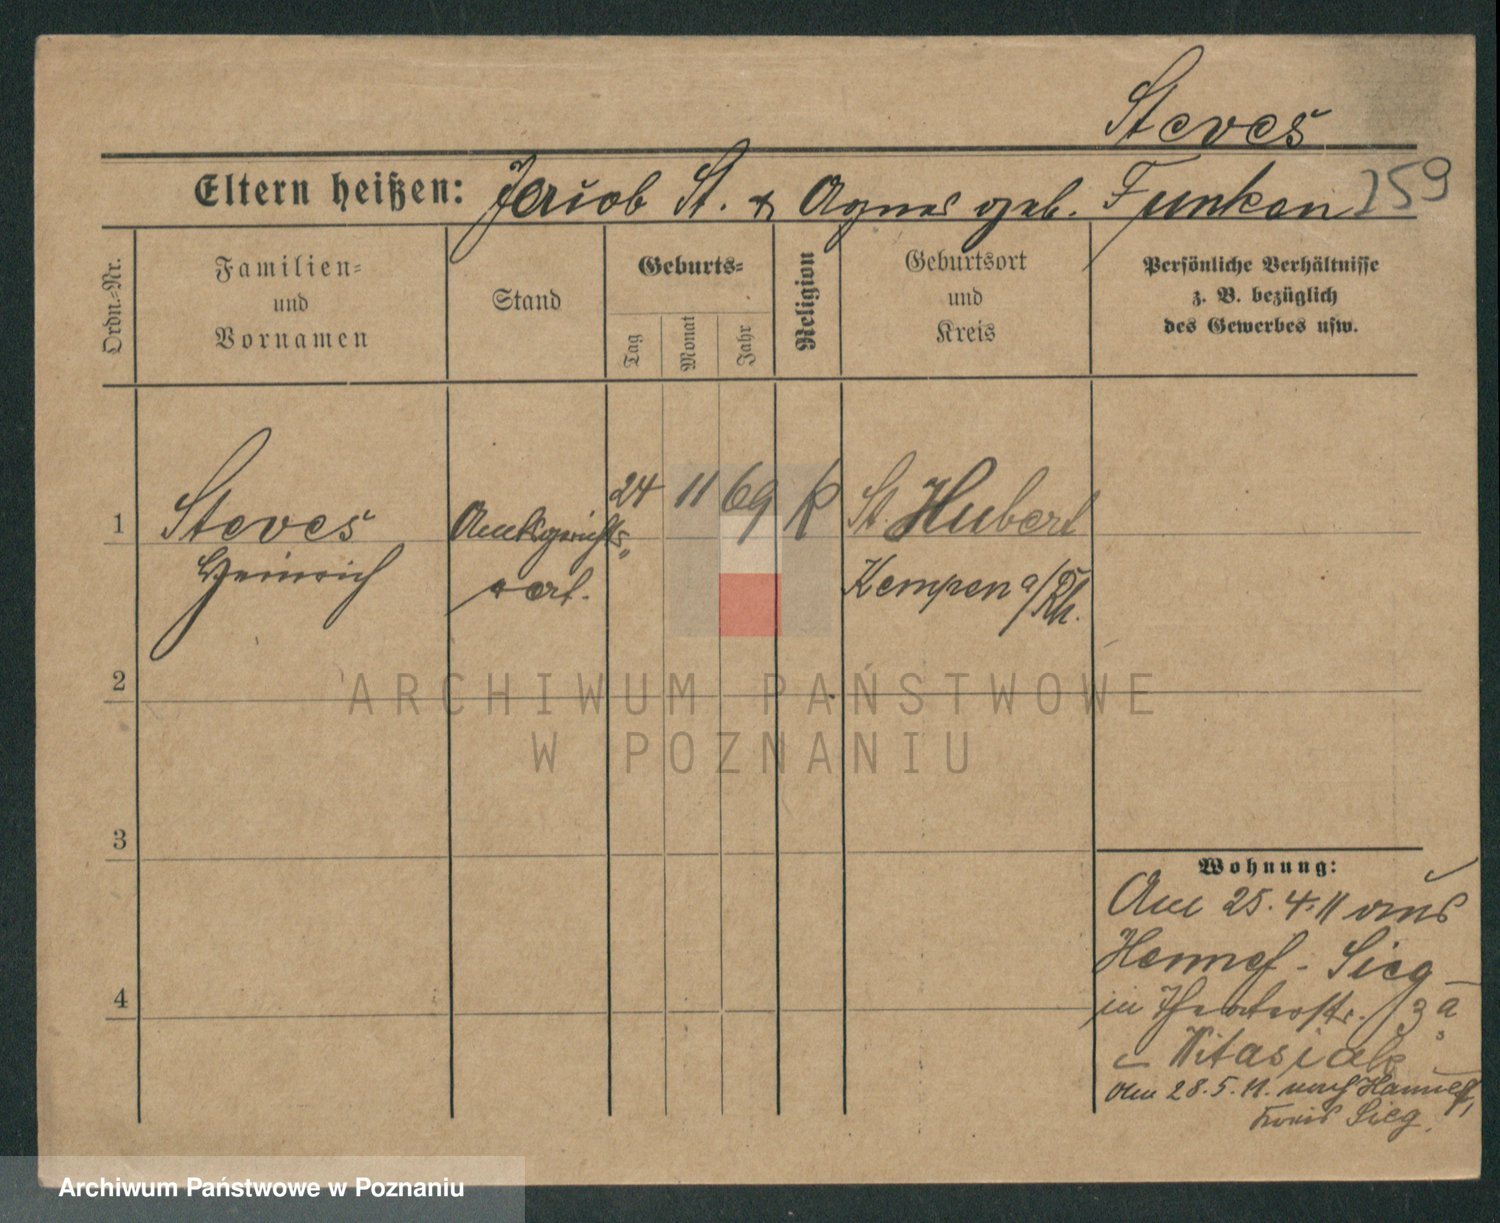 Steves
Eltern heißen: Jacob St. & Agnes geb. Funken 259
Ordn.-Nr.
Familien-
und
Vornamen
Stand
Geburts-
Tag
Monat
Jahr
Religion
Geburtsort
und
Kreis
Persönliche Verhältnisse
z. B. bezüglich
des Gewerbes usw.
1 Steves Amtsgerichts- 24 11 69 k St. Hubert
Heinrich Kempen a/Rh.
2
3
4
Wohnung:
Am 25.4.11 aus
Hennef - Sieg
in Theaterstr. 3a
Witasiak
Am 28.5.11. nach Hennef,
Kreis Sieg.
ARCHIWUM PAŃSTWOWE
W POZNANIU
Archiwum Państwowe w Poznaniu